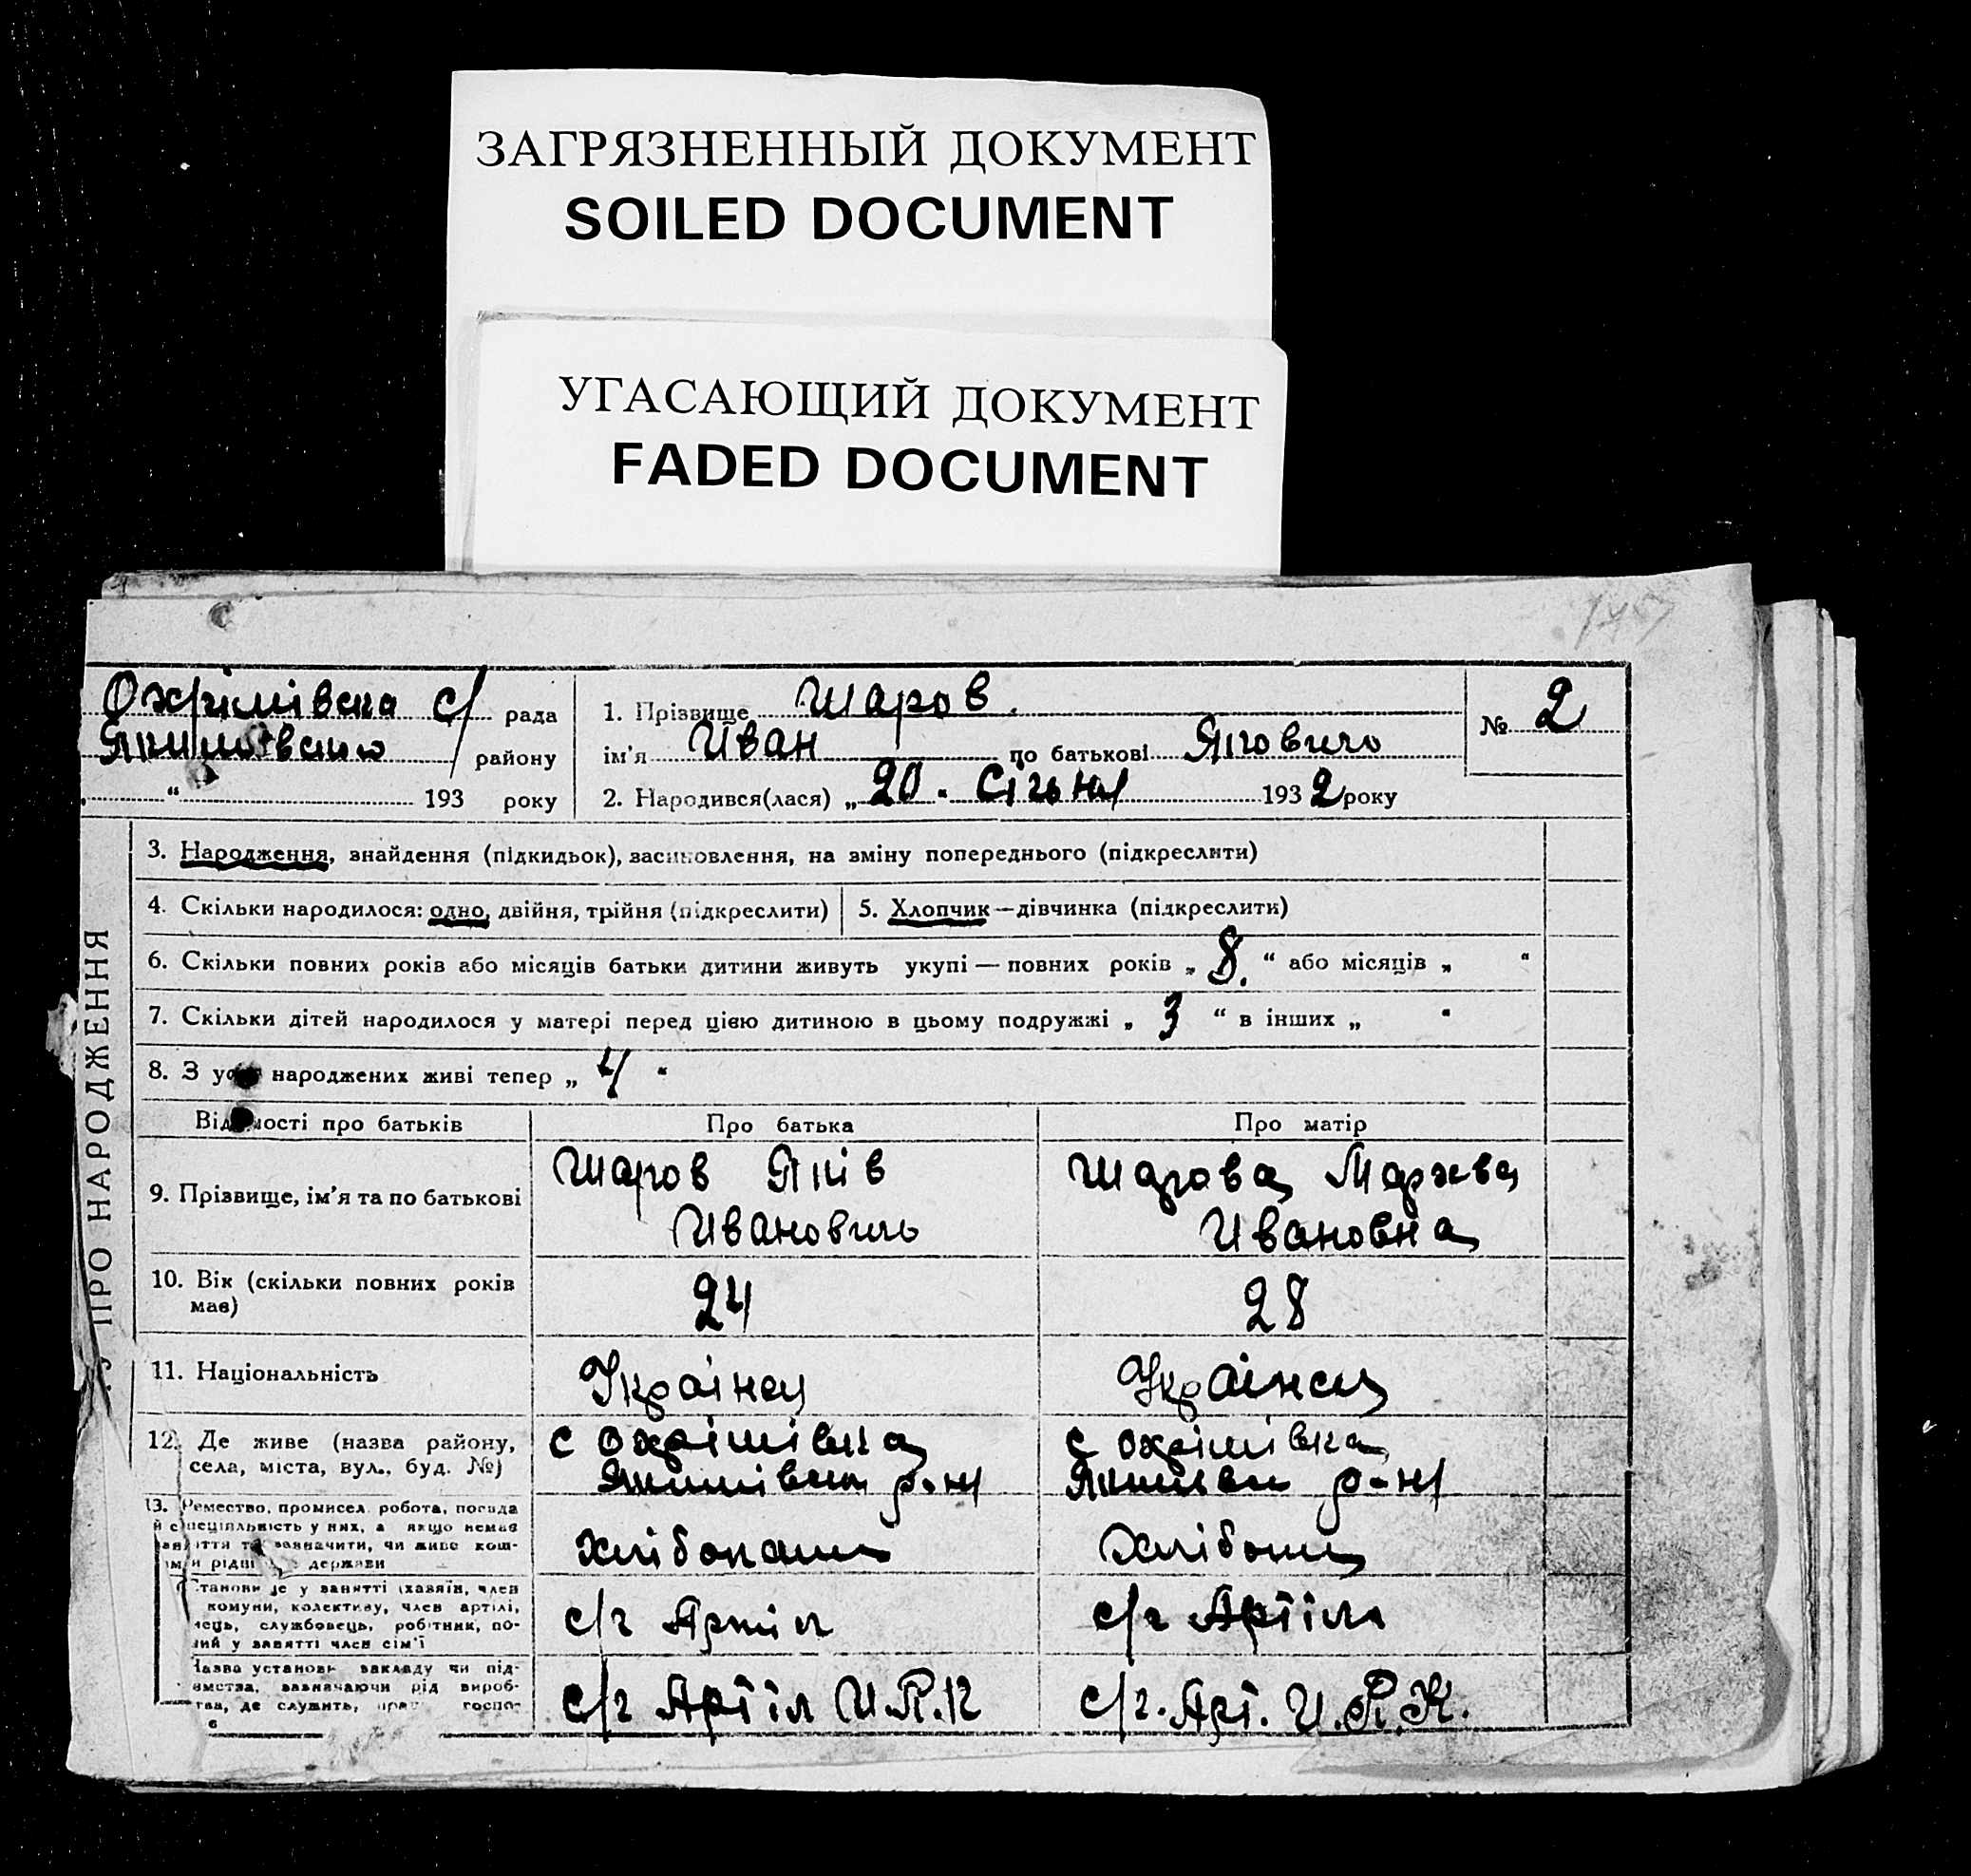 ЗАГРЯЗНЕННЫЙ ДОКУМЕНТ
SOILED DOCUMENT
УГАСАЮЩИЙ ДОКУМЕНТ
FADED DOCUMENT
Охрімівска с/ рада
району
" 193 року
1. Прізвище Шаров.
ім'я Иван по батькові
2. Народився(лася) „ 20. Січня 1932 року
№ 2
ПРО НАРОДЖЕННЯ
3. Народження, знайдення (підкидьок), засиновлення, на зміну попереднього (підкреслити)
4. Скільки народилося: одно, двійня, трійня (підкреслити)
5. Хлопчик—дівчинка (підкреслити)
6. Скільки повних років або місяців батьки дитини живуть укупі — повних років „ 8. " або місяців „ "
7. Скільки дітей народилося у матері перед цією дитиною в цьому подружжі „ 3 " в інших „ "
8. З народжених живі тепер „ 4 "
Відомості про батьків
Про батька
Про матір
9. Прізвище, ім'я та по батькові
Шаров Яків
Ивановичь
Шарова Мархва
Ивановна
10. Вік (скільки повних років
має)
24
28
11. Національність
Українец
Українец
12. Де живе (назва району,
села, міста, вул., буд. №)
с Охрімівка
р-н
с Охрімівка
р-н
13. Ремество, промисел, робота, посада
й спеціяльність у них, а якщо немає
заняття то зазначити, чи живе кош-
держави
хлібопашец
Становище у занятті (хазяїн, член
комуни, колективу, член артілі,
службовець, робітник, по-
у занятті член сім'ї
с/г Артіл
с/г Артіл
Назва установи закладу чи під-
зазначаючи рід вироб-
де служить, госпо-
с/г Артіл И.Р.К
с/г. Арт. И.Р.К.